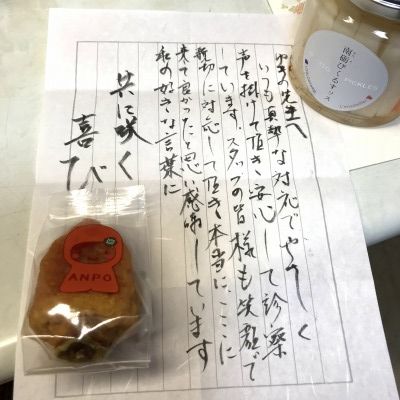 ゆきの先生へ
いつも真摯な対応でやさしく
声を掛けて頂き安心して診察
しています。スタッフの皆様も笑顔で
親切に対応して頂き本当にここに
来て良かったと思い感謝しています
私の好きな言葉に
共に咲く
喜び
ANPO
南砺ぴくるす
PICKLES